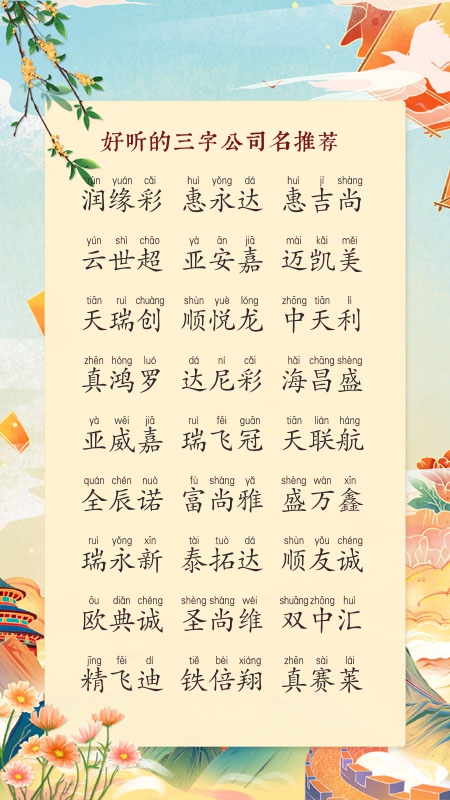 好听的三字公司名推荐
rùn yuán cǎi huì yǒng dá huì jí shàng
润缘彩 惠永达 惠吉尚
yún shì chāo yà ān jiā mài kǎi měi
云世超 亚安嘉 迈凯美
tiān ruì chuàng shùn yuè lóng zhōng tiān lì
天瑞创 顺悦龙 中天利
zhēn hóng luó dá ní cǎi hǎi chāng shèng
真鸿罗 达尼彩 海昌盛
yà wēi jiā ruì fēi guān tiān lián háng
亚威嘉 瑞飞冠 天联航
quán chén nuò fù shàng yǎ shèng wàn xīn
全辰诺 富尚雅 盛万鑫
ruì yǒng xīn tài tuò dá shùn yǒu chéng
瑞永新 泰拓达 顺友诚
ōu diǎn chéng shèng shàng wéi shuāng zhōng huì
欧典诚 圣尚维 双中汇
jīng fēi dí tiě bèi xiáng zhēn sài lái
精飞迪 铁倍翔 真赛莱